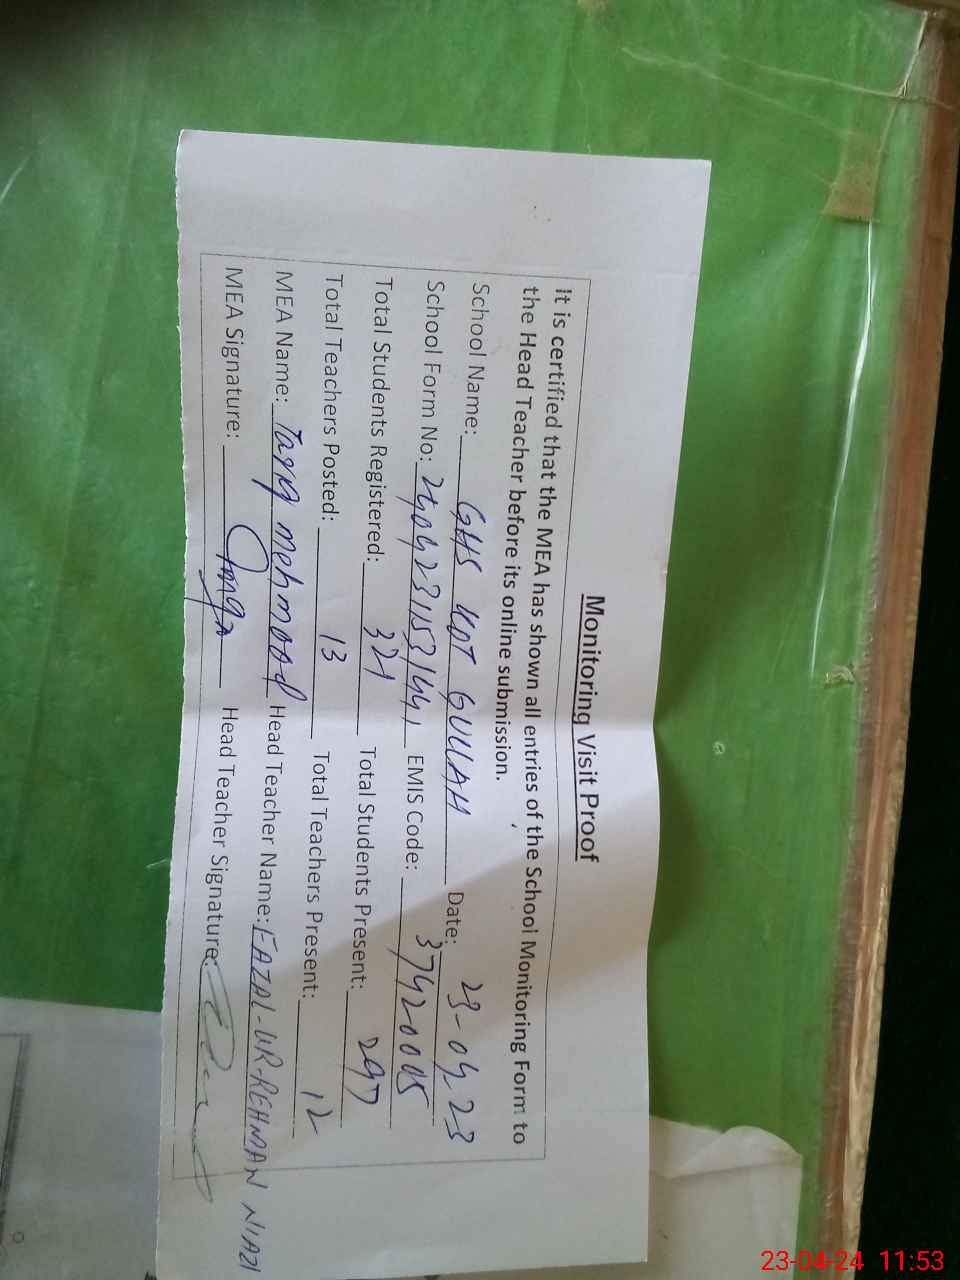 Monitoring Visit Proof
It is certified that the MEA has shown all entries of the School Monitoring Form to
the Head Teacher before its online submission.
School Name: GHS KOT GULLAH Date: 23-04-23
School Form No: 2404231531441 EMIS Code: 37420005
Total Students Registered: 321 Total Students Present: 297
Total Teachers Posted: 13 Total Teachers Present: 12
MEA Name: Tariq mehmood Head Teacher Name: FAZAL-UR-REHMAN NIAZI
MEA Signature: Head Teacher Signature:
23-04-24 11:53